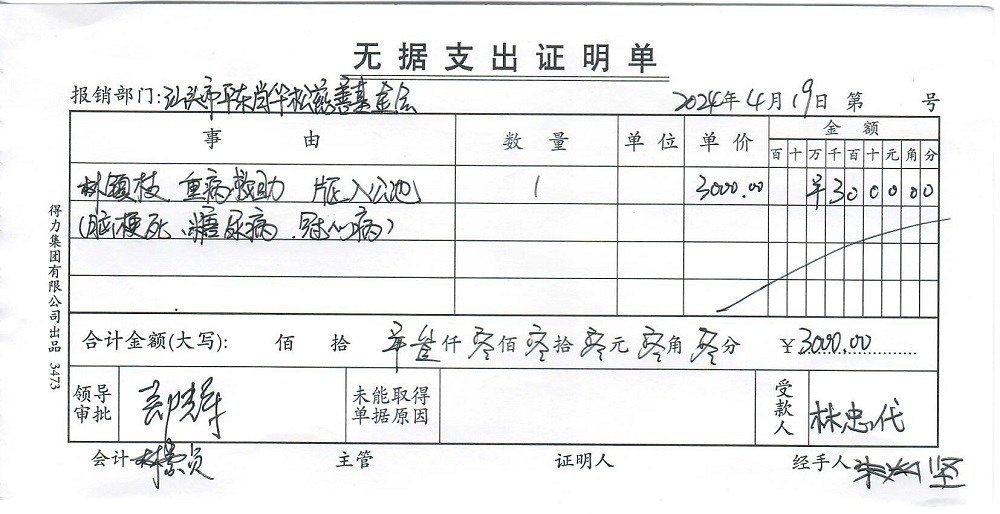 无据支出证明单
报销部门:汕头市平东肖华松慈善基金会 2024年4月19日 第 号
事由 数量 单位 单价 金额
百十万千百十元角分
林 枝 重病救助 1 3000.00 羊300000
(脑梗死、糖尿病、冠心病)
合计金额(大写): 佰 拾 羊叁仟零佰零拾零元零角零分 ¥3000.00
领导审批 未能取得单据原因 受款人 林忠代
会计 主管 证明人 经手人
得力集团有限公司出品 3473